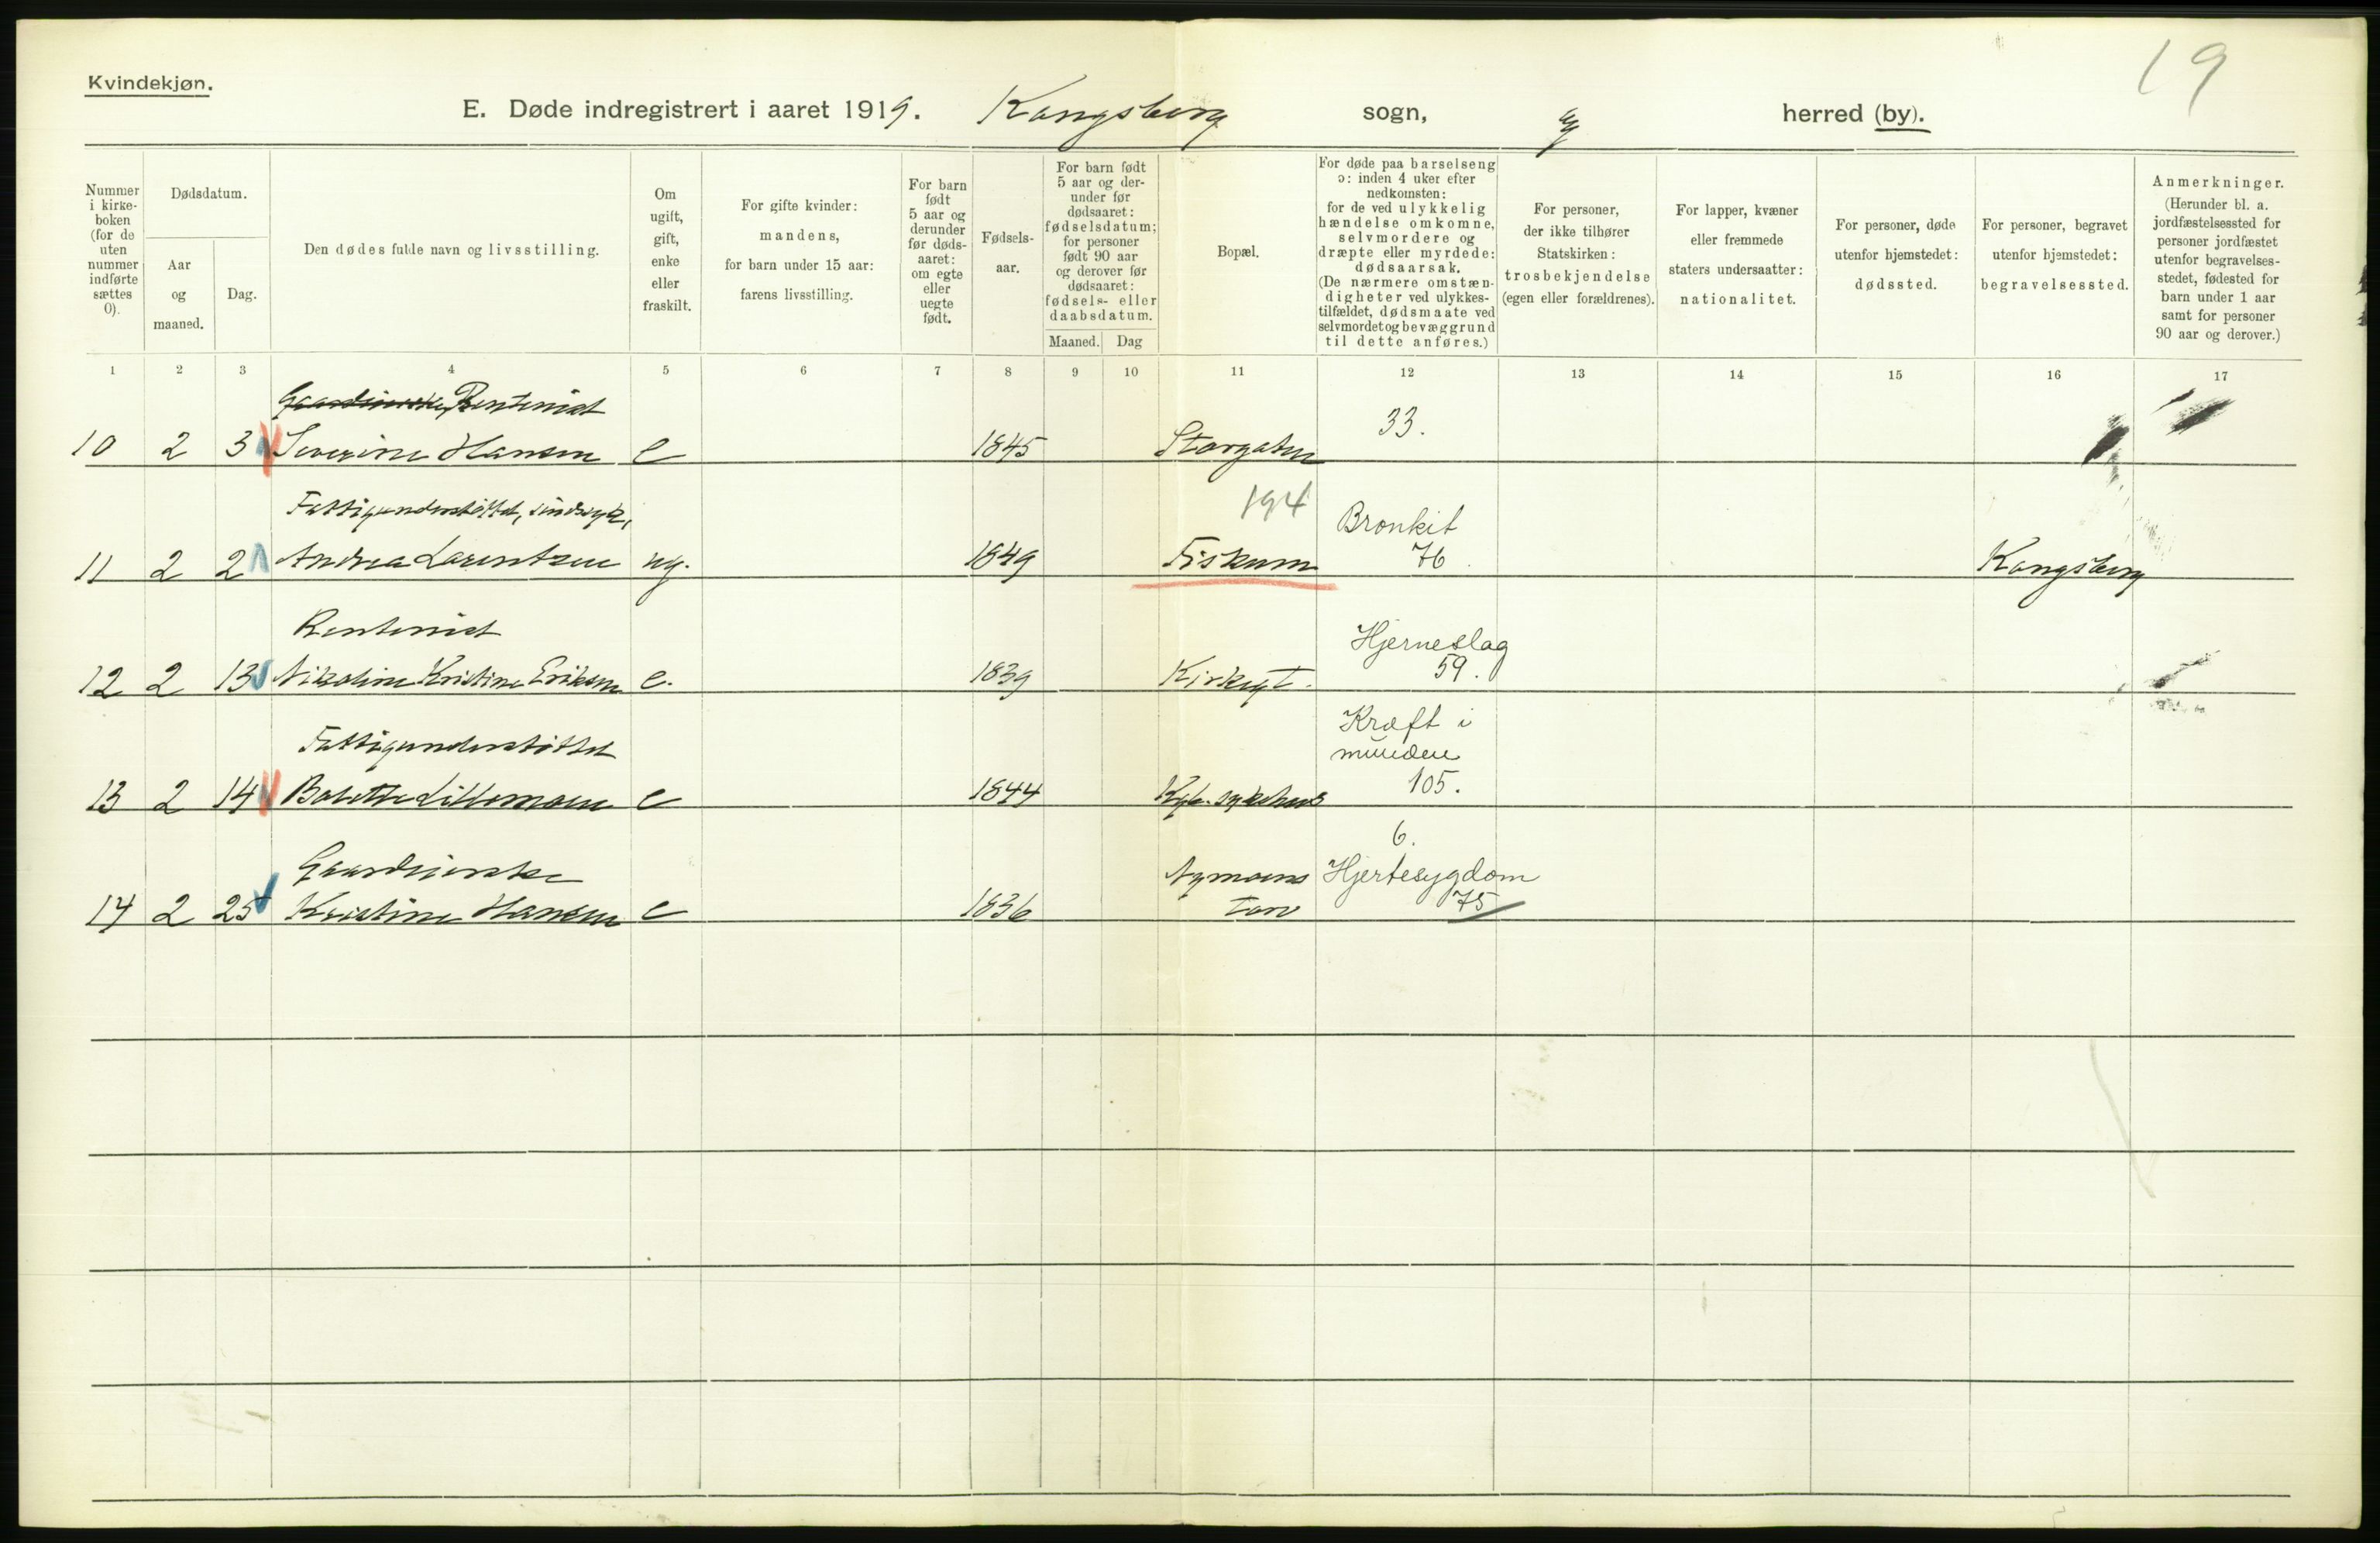 19
Kvindekjøn.
E. Døde indregistrert i aaret 1919. Kongsberg sogn, og herred (by).
Nummer i kirke-boken (for de uten nummer indførte sættes 0).
Dødsdatum.
Aar og maaned.
Dag.
Den dødes fulde navn og livsstilling.
Om ugift, gift, enke eller fraskilt.
For gifte kvinder: mandens, for barn under 15 aar: farens livsstilling.
For barn født 5 aar og derunder før døds-aaret: om egte eller uegte født.
Fødsels-aar.
For barn født 5 aar og der-under før dødsaaret: fødselsdatum; for personer født 90 aar og derover før dødsaaret: fødsels- eller daabsdatum.
Maaned. Dag
Bopæl.
For døde paa barselseng ɔ: inden 4 uker efter nedkomsten: for de ved ulykkelig hændelse omkomne, selvmordere og dræpte eller myrdede: dødsaarsak. (De nærmere omstæn-digheter ved ulykkes-tilfældet, dødsmaate ved selvmordet og bevæggrund til dette anføres.)
For personer, der ikke tilhører Statskirken: trosbekjendelse (egen eller forældrenes).
For lapper, kvæner eller fremmede staters undersaatter: nationalitet.
For personer, døde utenfor hjemstedet: dødssted.
For personer, begravet utenfor hjemstedet: begravelsessted.
Anmerkninger. (Herunder bl. a. jordfæstelsessted for personer jordfæstet utenfor begravelses-stedet, fødested for barn under 1 aar samt for personer 90 aar og derover.)
1 2 3 4 5 6 7 8 9 10 11 12 13 14 15 16 17
Gaardeierske, Rentenist 33.
10 2 3 Severine Hansen e 1845 Storgaten
Fattigunderstøttet, sindssyk, 194 Bronkit
11 2 2 Andrea Larentzen ug. 1849 Fiskum 76 Kongsberg
Rentenist Hjerneslag
12 2 13 Nikoline Kristine Eriksen e. 1839 Kirkegt. 59.
Kræft i
Fattigunderstøttet munden
13 2 14 Bolette Lillemoen e 1844 Kgb. sykehus 105.
6.
Gaardeierske Nymoens Hjertesygdom
14 2 25 Kristine Hansen e 1836 torv 75